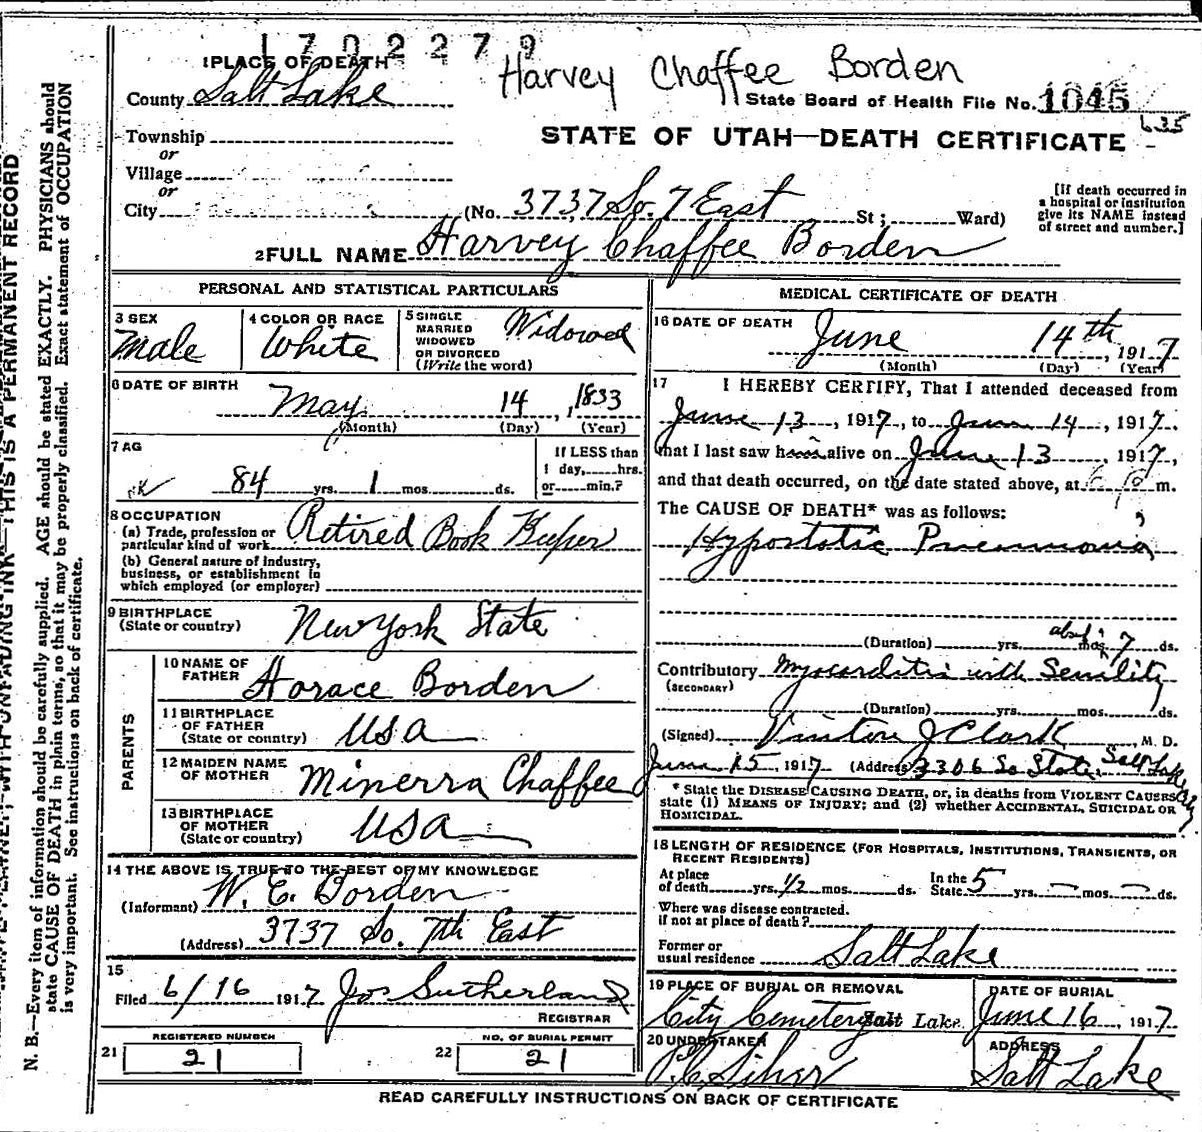 1702279
Harvey Chaffee Borden
1 PLACE OF DEATH
County Salt Lake
State Board of Health File No. 1045
635
Township
or
Village
or
City
STATE OF UTAH—DEATH CERTIFICATE
(No. 3737 So. 7 East St; Ward)
[If death occurred in
a hospital or institution
give its NAME instead
of street and number.]
2 FULL NAME Harvey Chaffee Borden
PERSONAL AND STATISTICAL PARTICULARS
3 SEX
Male
4 COLOR OR RACE
White
5 SINGLE
MARRIED
WIDOWED
OR DIVORCED
(Write the word)
Widowed
6 DATE OF BIRTH
May 14, 1833
(Month) (Day) (Year)
7 AG
84 yrs. 1 mos. ds.
If LESS than
1 day, hrs.
or min.?
8 OCCUPATION
(a) Trade, profession or
particular kind of work
Retired Book Keeper
(b) General nature of industry,
business, or establishment in
which employed (or employer)
9 BIRTHPLACE
(State or country)
New York State
PARENTS
10 NAME OF
FATHER
Horace Borden
11 BIRTHPLACE
OF FATHER
(State or country)
USA
12 MAIDEN NAME
OF MOTHER
Minerra Chaffee
13 BIRTHPLACE
OF MOTHER
(State or country)
USA
14 THE ABOVE IS TRUE TO THE BEST OF MY KNOWLEDGE
(Informant) W. E. Borden
(Address) 3737 So. 7th East
15
Filed 6/16 1917 Jos Sutherland
REGISTRAR
REGISTERED NUMBER
21 21
NO. OF BURIAL PERMIT
22 21
MEDICAL CERTIFICATE OF DEATH
16 DATE OF DEATH
June 14th, 1917
(Month) (Day) (Year)
17 I HEREBY CERTIFY, That I attended deceased from
June 13, 1917, to June 14, 1917.
that I last saw him alive on June 13 1917,
and that death occurred, on the date stated above, at 6 P m.
The CAUSE OF DEATH* was as follows:
Hypostatic Pneumonia
(Duration) yrs. mos. 7 ds.
Contributory Myocarditis with Senility
(SECONDARY)
(Duration) yrs. mos. ds.
(Signed) Vinton J Clark, M. D.
June 15, 1917 (Address) 3306 So State, Salt Lake City
* State the DISEASE CAUSING DEATH, or, in deaths from VIOLENT CAUSES
state (1) MEANS OF INJURY; and (2) whether ACCIDENTAL, SUICIDAL OR
HOMICIDAL.
18 LENGTH OF RESIDENCE (FOR HOSPITALS, INSTITUTIONS, TRANSIENTS, OR
RECENT RESIDENTS)
At place
of death yrs. 1/2 mos. ds.
In the
State 5 yrs. — mos. — ds.
Where was disease contracted.
if not at place of death?
Former or
usual residence Salt Lake
19 PLACE OF BURIAL OR REMOVAL
City Cemetery Salt Lake
DATE OF BURIAL
June 16, 1917
20 UNDERTAKER
ADDRESS
Salt Lake
READ CAREFULLY INSTRUCTIONS ON BACK OF CERTIFICATE
WITH UNFADING INK—THIS IS A PERMANENT RECORD
N. B.—Every item of information should be carefully supplied. AGE should be stated EXACTLY. PHYSICIANS should
state CAUSE OF DEATH in plain terms, so that it may be properly classified. Exact statement of OCCUPATION
is very important. See instructions on back of certificate.